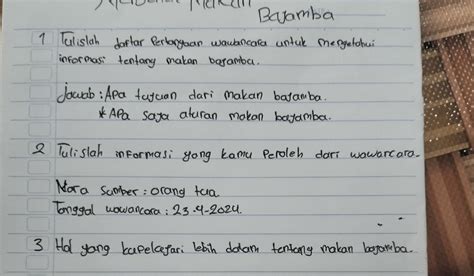 Makan
Bajamba
1 Tulislah daftar Pertanyaan wawancara untuk mengetahui
informasi tentang makan bajamba.
jawab : Apa tujuan dari makan bajamba.
* Apa saja aturan makan bajamba.
2 Tulislah informasi yang kamu Peroleh dari wawancara.
Nara Sumber : orang tua
Tanggal wawancara : 23-4-2024.
3 Hal yang kupelajari lebih dalam tentang makan bajamba.